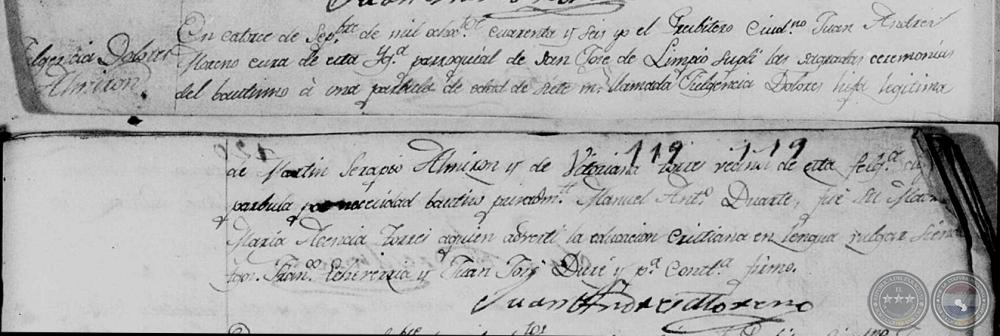 Fulgencia Dolores
Almiron.
En catorce de Sep.bre de mil ochoc.tos cuarenta y seis yo el Presbitero Ciud.no Juan Andres
Moreno cura de esta Yg.a parroquial de San Jose de Limpio supli las sagradas ceremonias
del bautismo à una parbula de edad de siete m.s llamada Fulgencia Dolores hija legitima
119 119
de Martin Serapio Almiron y de Vitoriana Torres vecinos de esta felig.a
parbula por necesidad bautiso privadam.te Manuel Ant.o Duarte, fue
Maria Torres aquien adverti la educacion Cristiana en lengua vulgar
Fran.co Echeverria y Juan Jose y p.a Const.a firmo.
Juan Andres Moreno